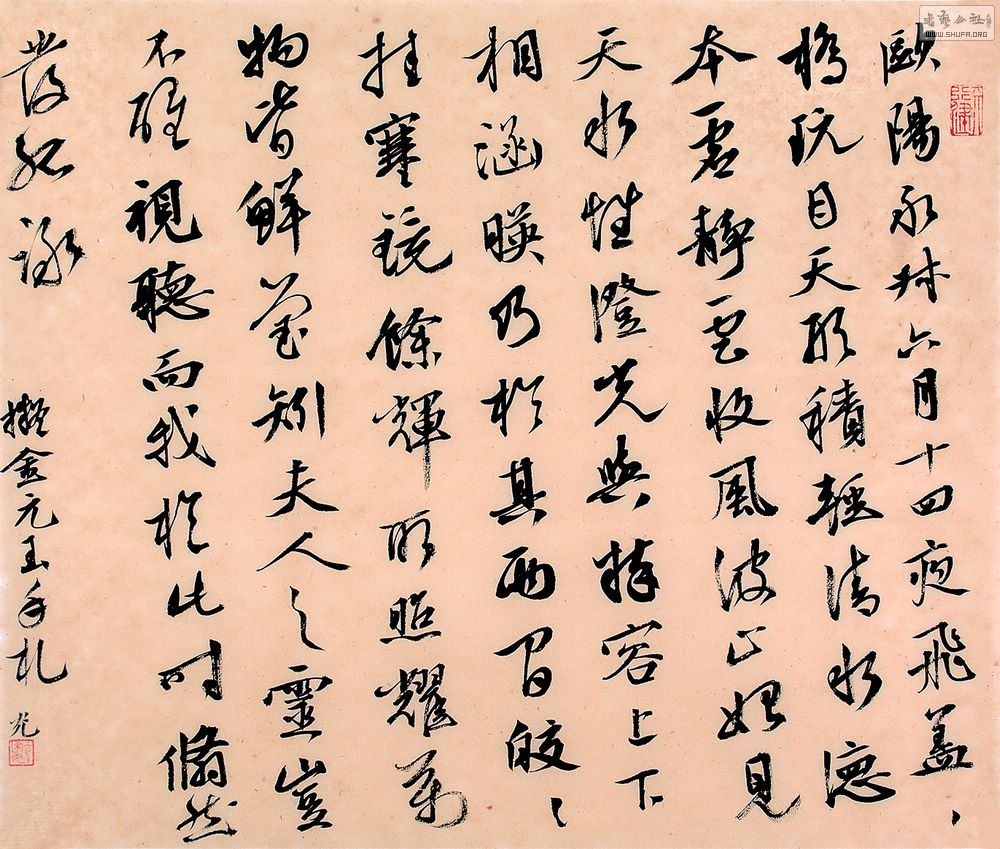 歐陽永叔六月十四夜飛蓋、
橋玩月天形積輕清水德
本虛靜雲收風波止始見
天水性澄光與粹容上下
相涵暎乃於其兩間皎〻
挂寒鏡餘輝所照耀萬
物皆鮮瑩矧夫人之靈豈
不醒視聽而我於此時翛然
發孤詠 擬金元玉手札 光
書藝公社
WWW.SHUFA.ORG